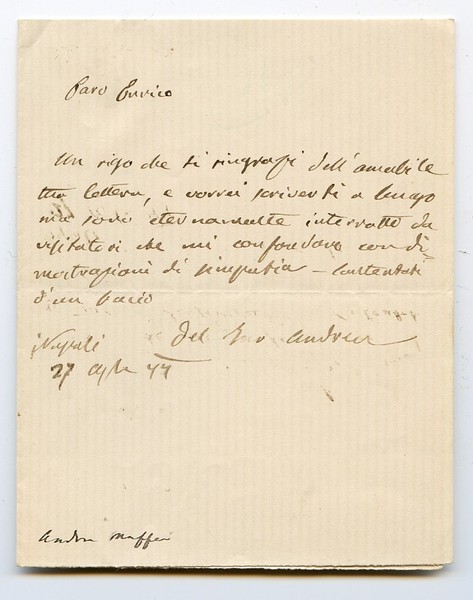 Caro Enrico
Un rigo che ti ringrazi dell'amabile
tua lettera, e vorrei scriverti a lungo
ma sono eternamente interrotto da
visitatori che mi confondono con di-
mostrazioni di simpatia – Contentati
d'un bacio
del tuo Andrea
Napoli
27
Andrea Maffei